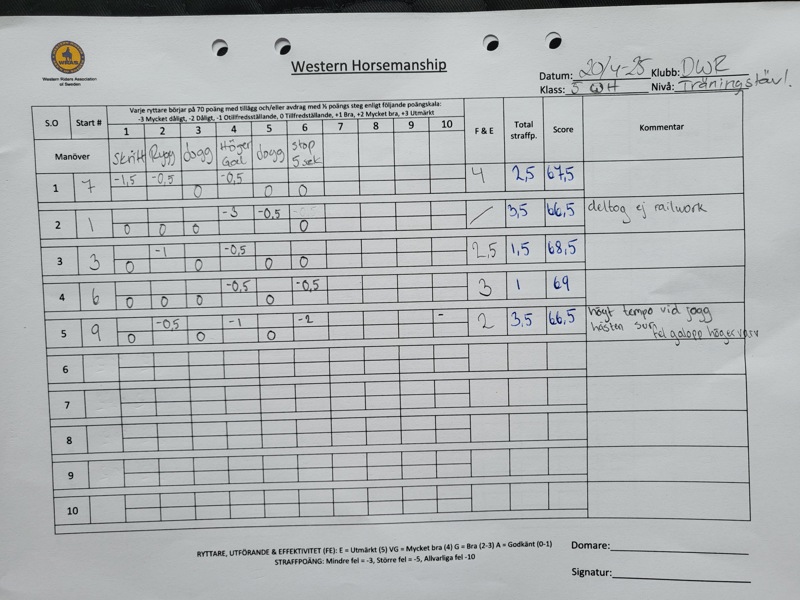 WRAS
Western Riders Association
of Sweden
Western Horsemanship
Datum: 20/4-25 Klubb: DWR
Klass: 5 WH Nivå: Träningstävl.
Varje ryttare börjar på 70 poäng med tillägg och/eller avdrag med ½ poängs steg enligt följande poängskala:
-3 Mycket dåligt, -2 Dåligt, -1 Otillfredsställande, 0 Tillfredställande, +1 Bra, +2 Mycket bra, +3 Utmärkt
S.O Start # 1 2 3 4 5 6 7 8 9 10 F & E Total straffp. Score Kommentar
Manöver Skritt Rygg Jogg Höger Gal Jogg stop 5 sek
1 7 -1,5 -0,5 0 -0,5 0 0 4 2,5 67,5
2 1 0 0 0 -3 -0,5 0 / 3,5 66,5 deltog ej railwork
3 3 0 -1 0 -0,5 0 0 2,5 1,5 68,5
4 6 0 0 0 -0,5 0 -0,5 3 1 69
5 9 0 -0,5 0 -1 0 -2 - 2 3,5 66,5 högt tempo vid jogg
hästen sur
fel galopp höger varv
6
7
8
9
10
RYTTARE, UTFÖRANDE & EFFEKTIVITET (FE): E = Utmärkt (5) VG = Mycket bra (4) G = Bra (2-3) A = Godkänt (0-1)
STRAFFPOÄNG: Mindre fel = -3, Större fel = -5, Allvarliga fel -10
Domare:
Signatur: